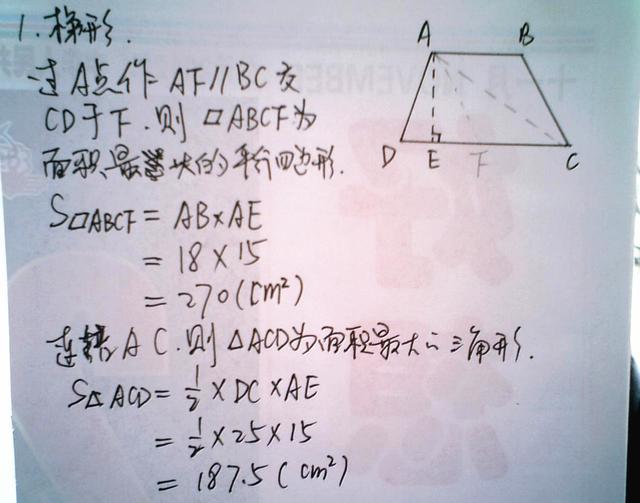 1.梯形.
过A点作 AF//BC交
CD于F.则 ▱ABCF为
面积最大的平行四边形.
S▱ABCF = AB×AE
= 18×15
= 270(cm²)
连接AC.则△ACD为面积最大的三角形.
S△ACD = 1/2 × DC × AE
= 1/2 × 25 × 15
= 187.5(cm²)
A
B
D
E
F
C